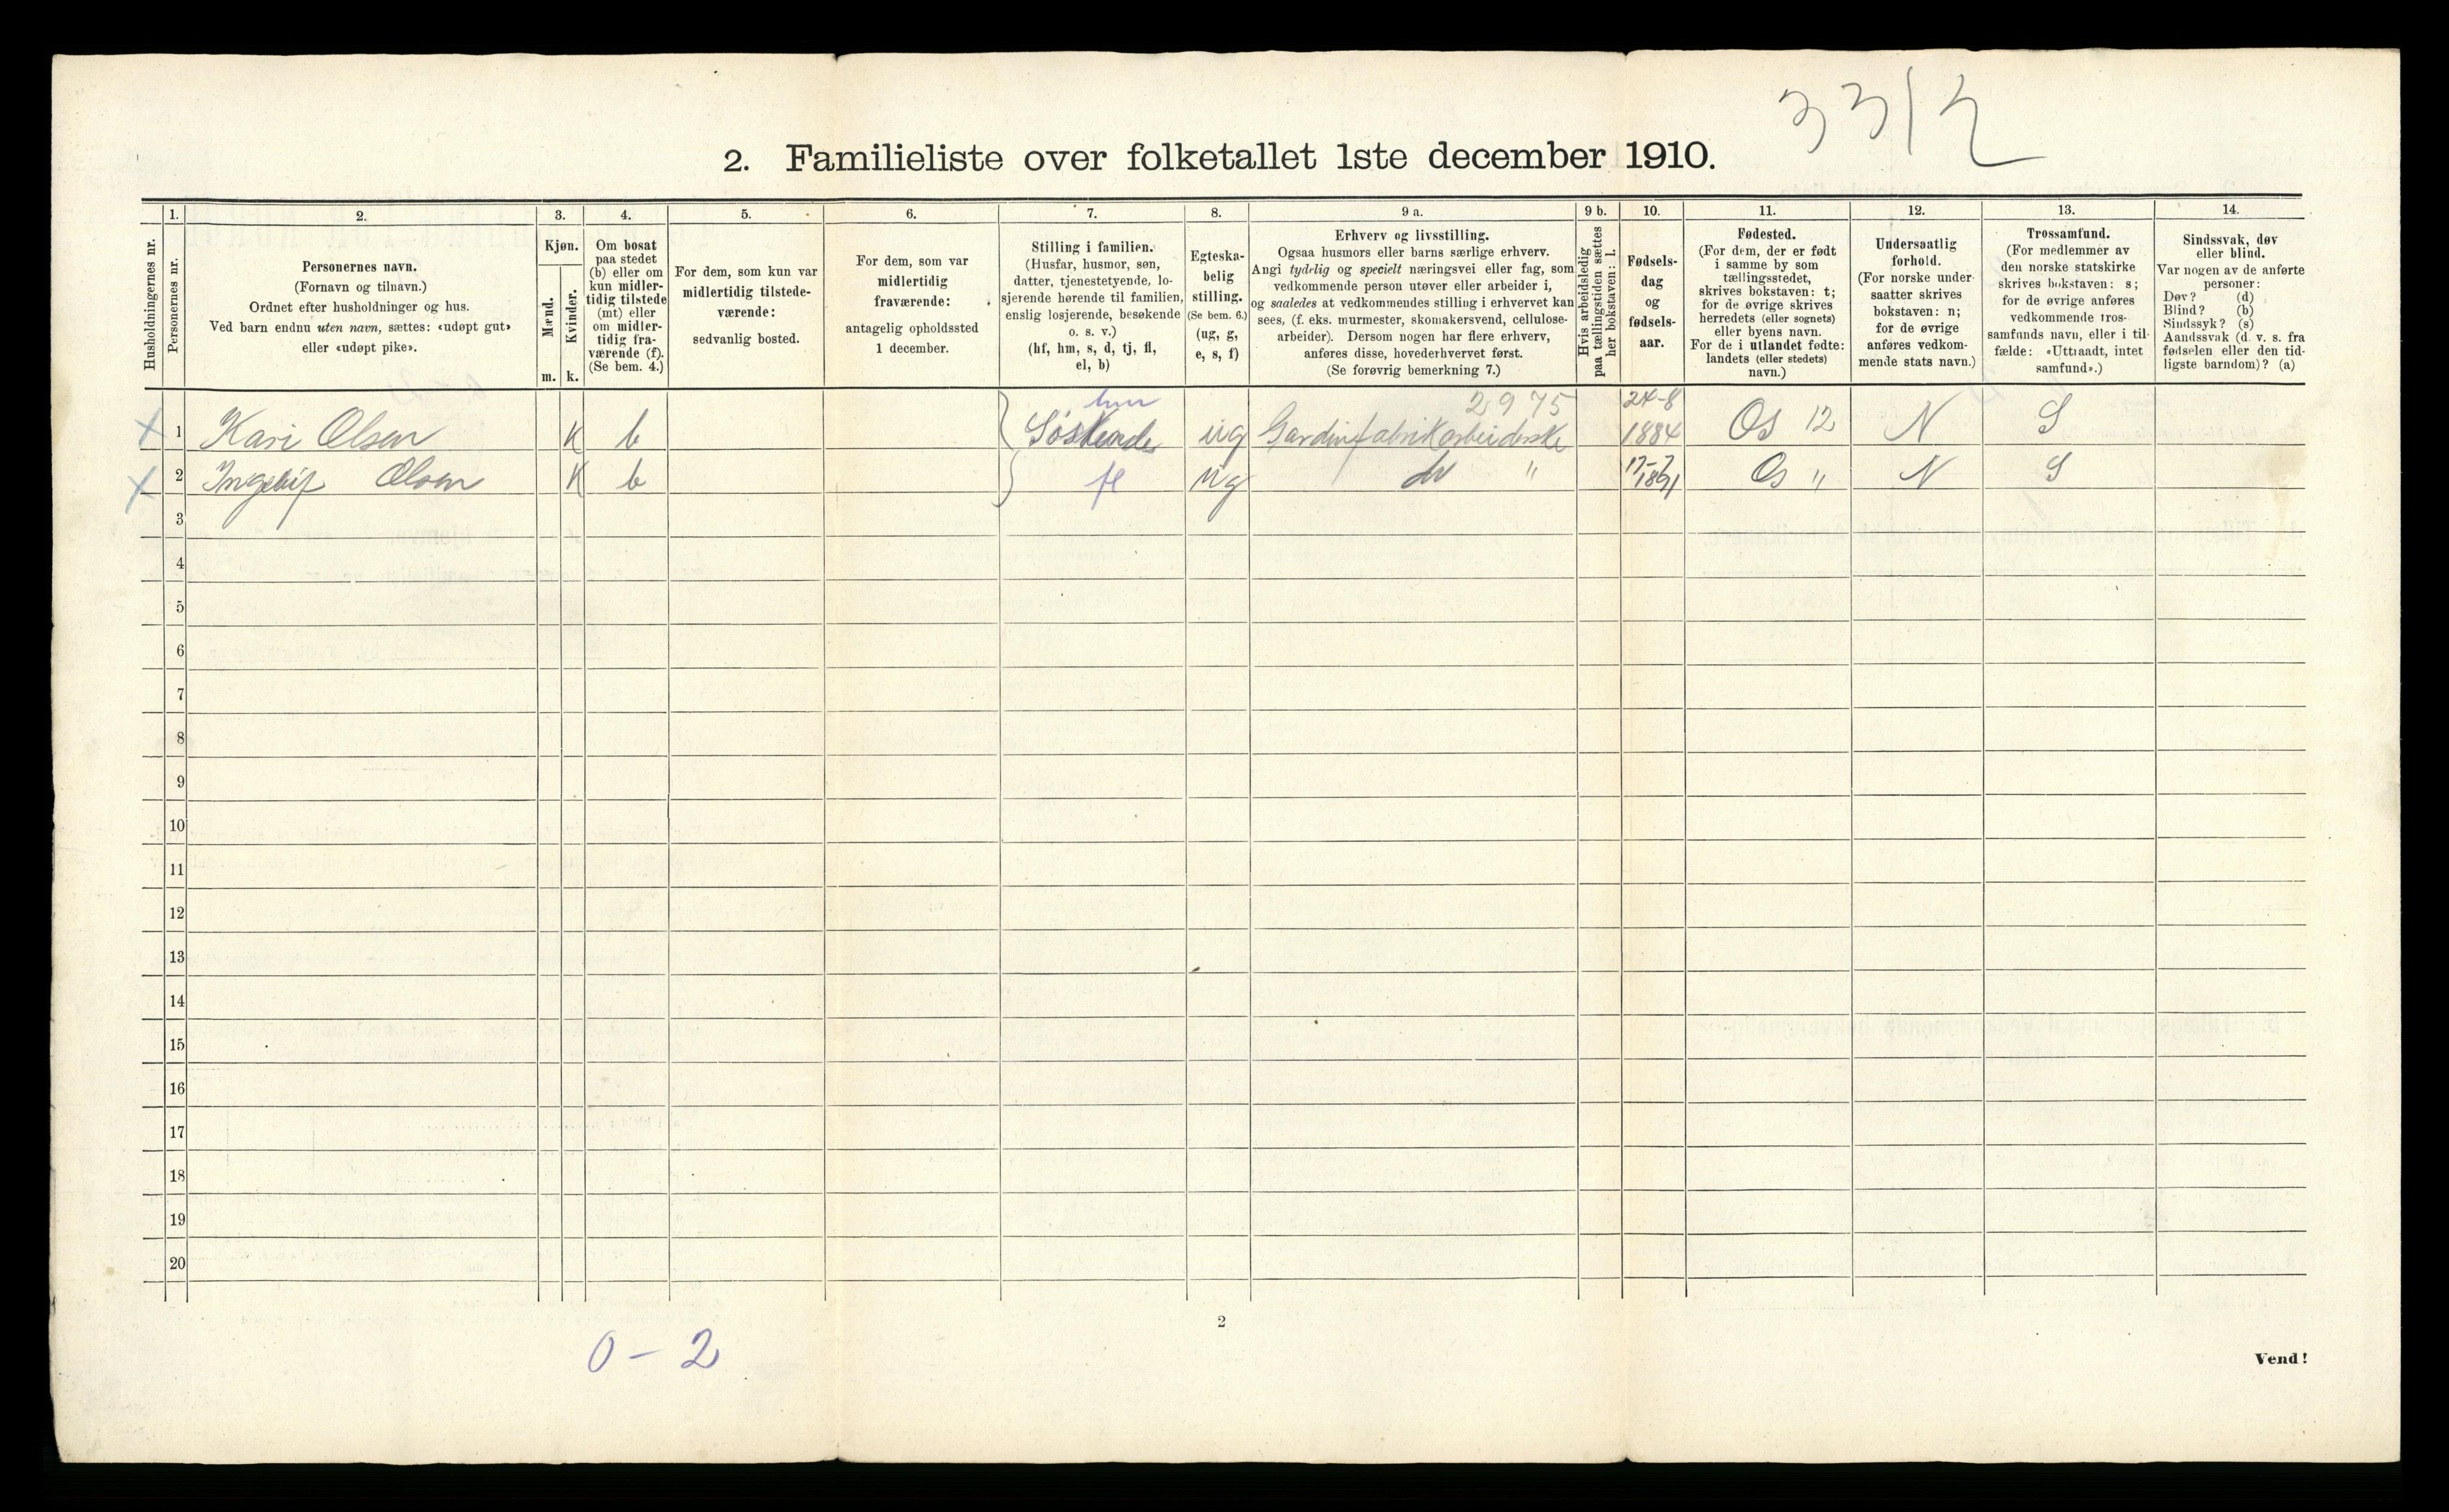 33/2
2. Familieliste over folketallet 1ste december 1910.
1. 2. 3. 4. 5. 6. 7. 8. 9 a. 9 b. 10. 11. 12. 13. 14.
Husholdningernes nr.
Personernes nr.
Personernes navn.
(Fornavn og tilnavn.)
Ordnet efter husholdninger og hus.
Ved barn endnu uten navn, sættes: «udøpt gut»
eller «udøpt pike».
Kjøn.
Mænd.
m.
Kvinder.
k.
Om bosat
paa stedet
(b) eller om
kun midler-
tidig tilstede
(mt) eller
om midler-
tidig fra-
værende (f).
(Se bem. 4.)
For dem, som kun var
midlertidig tilstede-
værende:
sedvanlig bosted.
For dem, som var
midlertidig
fraværende:
antagelig opholdssted
1 december.
Stilling i familien.
(Husfar, husmor, søn,
datter, tjenestetyende, lo-
sjerende hørende til familien,
enslig losjerende, besøkende
o. s. v.)
(hf, hm, s, d, tj, fl,
el, b)
Egteska-
belig
stilling.
(Se bem. 6.)
(ug, g,
e, s, f)
Erhverv og livsstilling.
Ogsaa husmors eller barns særlige erhverv.
Angi tydelig og specielt næringsvei eller fag, som
vedkommende person utøver eller arbeider i,
og saaledes at vedkommendes stilling i erhvervet kan
sees, (f. eks. murmester, skomakersvend, cellulose-
arbeider). Dersom nogen har flere erhverv,
anføres disse, hovederhvervet først.
(Se forøvrig bemerkning 7.)
Hvis arbeidsledig
paa tællingstiden sættes
her bokstaven: l.
Fødsels-
dag
og
fødsels-
aar.
Fødested.
(For dem, der er født
i samme by som
tællingsstedet,
skrives bokstaven: t;
for de øvrige skrives
herredets (eller sognets)
eller byens navn.
For de i utlandet fødte:
landets (eller stedets)
navn.)
Undersaatlig
forhold.
(For norske under-
saatter skrives
bokstaven: n;
for de øvrige
anføres vedkom-
mende stats navn.)
Trossamfund.
(For medlemmer av
den norske statskirke
skrives bokstaven: s;
for de øvrige anføres
vedkommende tros-
samfunds navn, eller i til-
fælde: «Uttraadt, intet
samfund».)
Sindssvak, døv
eller blind.
Var nogen av de anførte
personer:
Døv? (d)
Blind? (b)
Sindssyk? (s)
Aandssvak (d. v. s. fra
fødselen eller den tid-
ligste barndom)? (a)
hm 2975 24-8
X 1 Kari Olsen K b Søskende ug Gardinfabrikarbeiderske 1884 Os 12 N S
X 2 Olsen K b fl ug do " 17-7 1891 Os " N S
3
4
5
6
7
8
9
10
11
12
13
14
15
16
17
18
19
20
2
0 - 2
Vend!